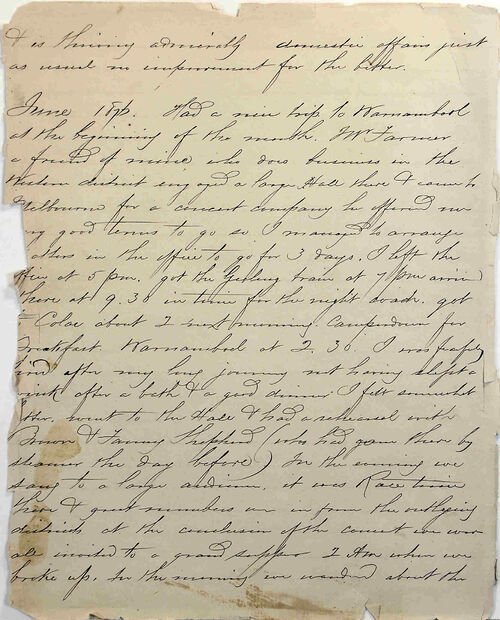 & is thriving admirably domestic affairs just
as usual no improvement for the better.
June 1876. Had a nice trip to Warnambool
at the beginning of the month. Mr Farmer
a friend of mine who does business in the
Western district engaged a large Hall there & came to
Melbourne for a concert company he offered me
very good terms to go so I managed to arrange
in the office to go for 3 days. I left the
at 5 pm. got the Geelong train at 7 pm arrived
there at 9.30 in time for the night coach. got
Colac about 2 next morning. Camperdown for
breakfast. Warnambool at 2.30. I was
after my long journey not having slept a
wink after a bath & a good dinner I felt somewhat
went to the Hall & had a rehearsal with
& Fanny Shepherd (who had gone there by
steamer the day before) In the evening we
sang to a large audience. it was Race time
there & great numbers were in from the outlying
districts at the conclusion of the concert we were
all invited to a grand supper 2 AM when we
broke up. In the morning we wandered about the